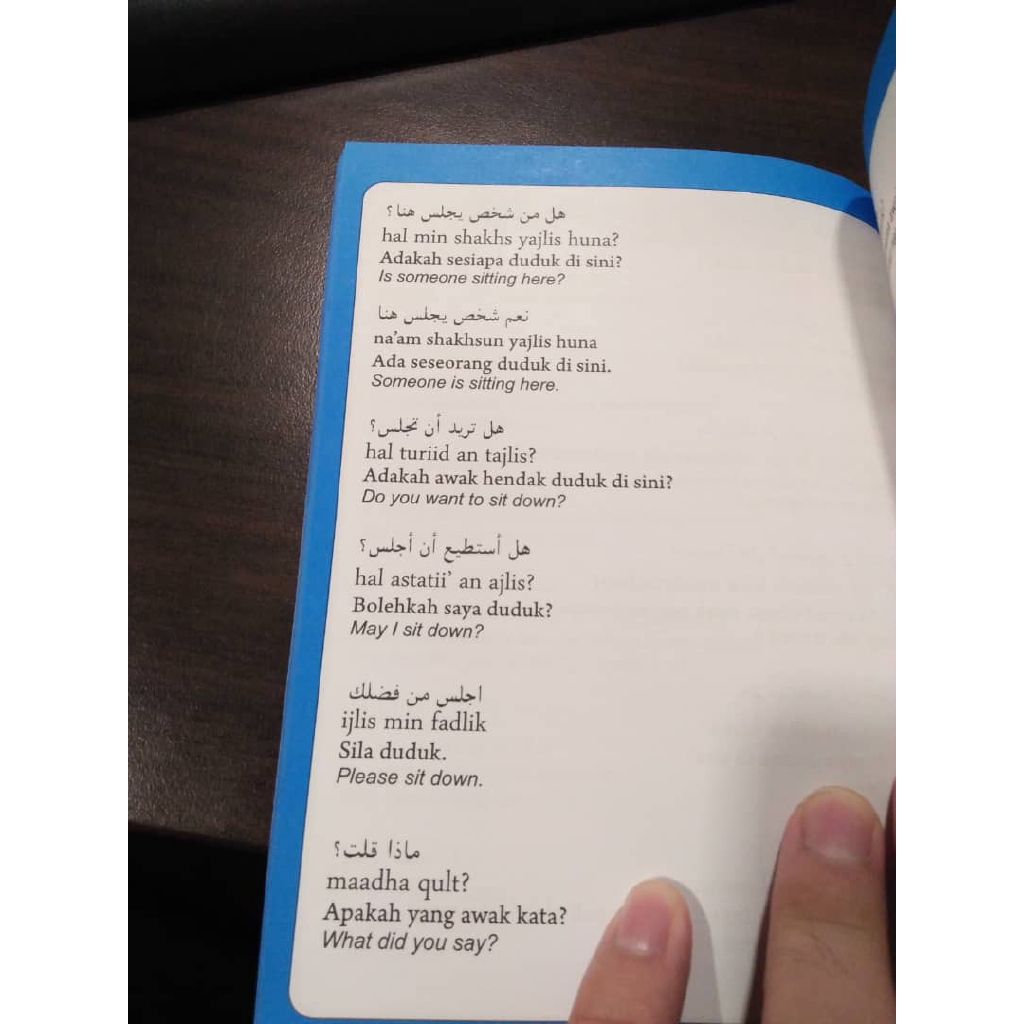 هل من شخص يجلس هنا؟
hal min shakhs yajlis huna?
Adakah sesiapa duduk di sini?
Is someone sitting here?
نعم شخص يجلس هنا
na'am shakhsun yajlis huna
Ada seseorang duduk di sini.
Someone is sitting here.
هل تريد أن تجلس؟
hal turiid an tajlis?
Adakah awak hendak duduk di sini?
Do you want to sit down?
هل أستطيع أن أجلس؟
hal astatii' an ajlis?
Bolehkah saya duduk?
May I sit down?
اجلس من فضلك
ijlis min fadlik
Sila duduk.
Please sit down.
ماذا قلت؟
maadha qult?
Apakah yang awak kata?
What did you say?